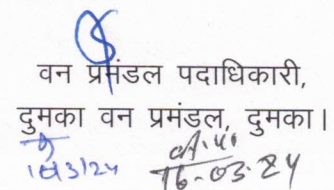 वन प्रमंडल पदाधिकारी,
दुमका वन प्रमंडल, दुमका।
16.03.24